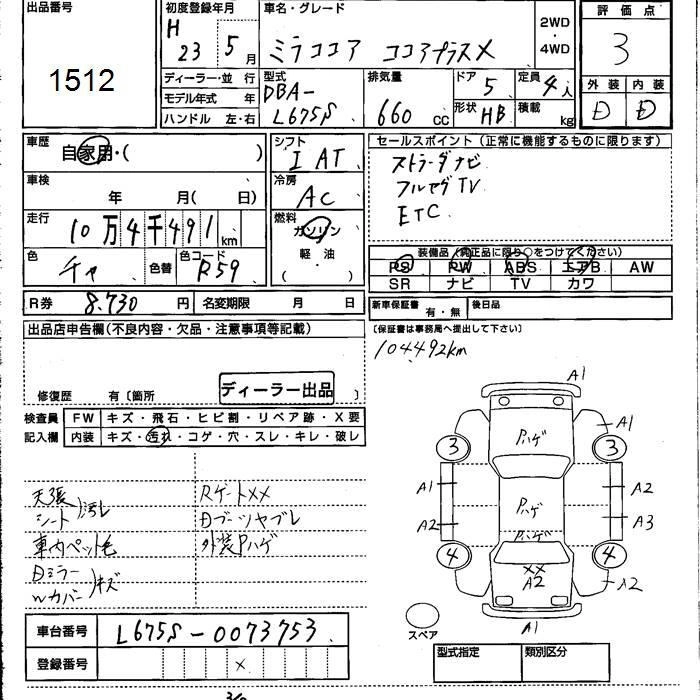 出品番号
1512
初度登録年月
H
23 5 月
車名・グレード
ミラココア ココアプラスX
2WD
・
4WD
評価点
3
外装 内装
D D
ディーラー・並行
モデル年式 年
ハンドル 左・右
型式
DBA-
L675S
排気量
660 CC
ドア 5
形状 HB
定員 4人
積載 kg
車歴
自家用・( )
車検
年 月( 日)
走行
10万4千491km
色 チャ 色替 色コード R59
R券 8,730 円 名変期限 月 日
シフト
I AT
冷房
AC
燃料
ガソリン
軽・油
( )
セールスポイント(正常に機能するものに限ります)
ストラーダナビ
フルセグTV
ETC
装備品(純正品に限り○をつけてください)
PS PW ABS エアB AW
SR ナビ TV カワ
新車保証書 有・無 後日品
(保証書は事務局へ提出して下さい)
104492km
出品店申告欄(不良内容・欠品・注意事項等記載)
修復歴 有〔箇所 〕
ディーラー出品
検査員 FW キズ・飛石・ヒビ割・リペア跡・X要
記入欄 内装 キズ・汚れ・コゲ・穴・スレ・キレ・破レ
天張
シート)汚レ
車内ペット毛
Dミラー
Wカバー)キズ
RゲートXX
Dブーツヤブレ
外装Pハゲ
A1
A1
Pハゲ
3 3
A1 A2
Pハゲ
A2 A3
Pハゲ
4 4
XX
A2
A2
A1
スペア
車台番号 L675S-0073753
登録番号 ×
型式指定 類別区分